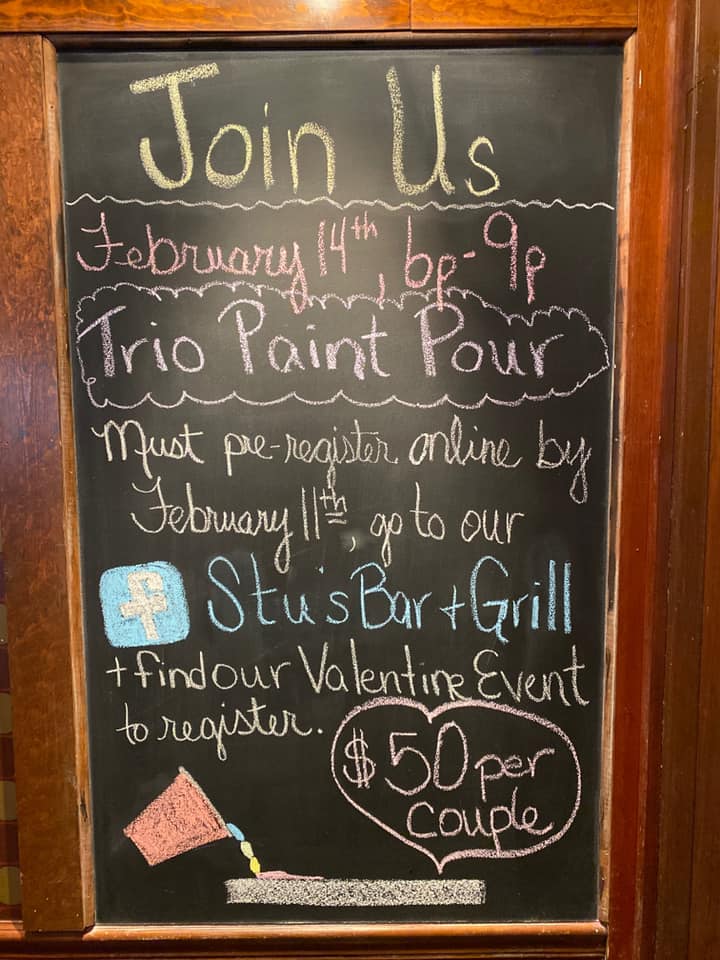 Join Us
February 14th, 6p-9p
Trio Paint Pour
Must pre-register online by
February 11th, go to our
f Stu's Bar + Grill
+ find our Valentine Event
to register.
$50 per
couple